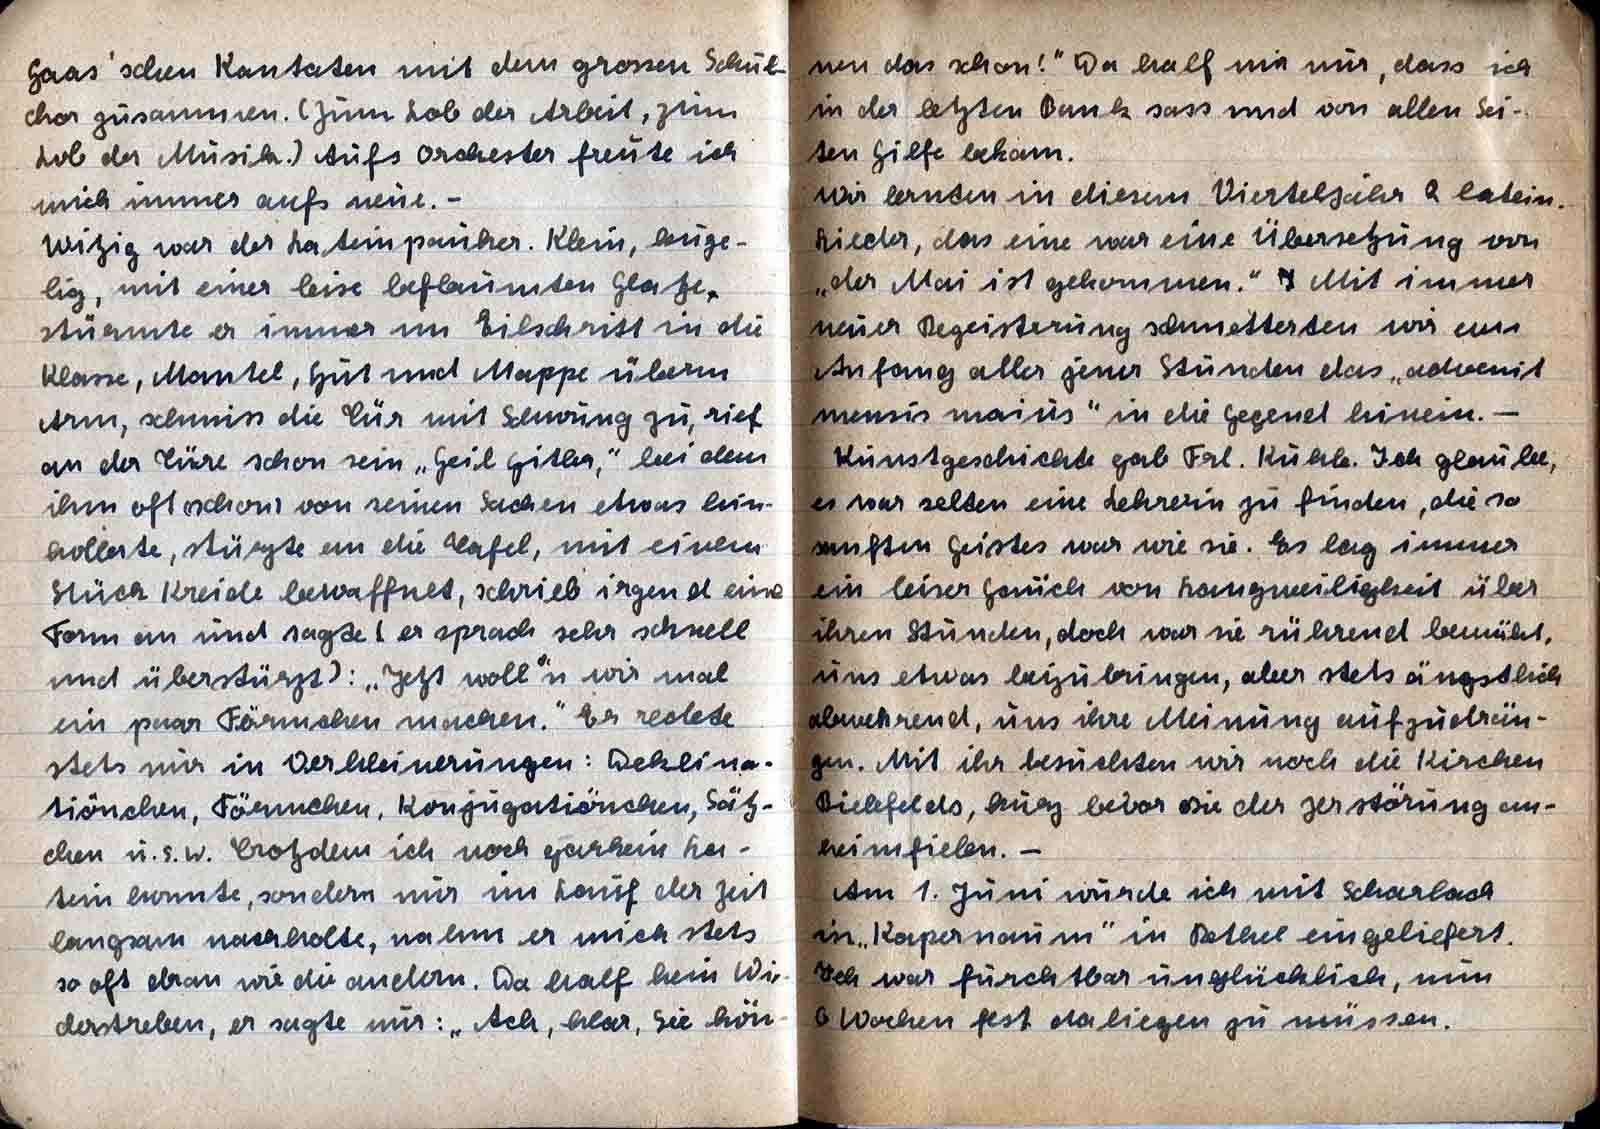 Haas'schen Kantaten mit dem grossen Schul-
chor zusammen. (Zum Lob der Arbeit, zum
Lob der Musik.) Aufs Orchester freute ich
mich immer aufs neue. –
Witzig war der Lateinpauker. Klein, kuge-
lig, mit einer leise beflaumten Glatze,
stürmte er immer im Eilschritt in die
Klasse, Mantel, Hut und Mappe überm
Arm, schmiss die Tür mit Schwung zu, rief
an der Türe schon sein „Heil Hitler," bei dem
ihm oft schon von seinen Sachen etwas hin-
kollerte, stürzte an die Tafel, mit einem
Stück Kreide bewaffnet, schrieb irgend eine
Form an und sagte (er sprach sehr schnell
und überstürzt): „Jetzt woll'n wir mal
ein paar Förmchen machen." Er redete
stets nur in Verkleinerungen: Deklina-
tiönchen, Förmchen, Konjugatiönchen, Sätz-
chen u.s.w. Trotzdem ich noch garkein La-
tein konnte, sondern nur im Lauf der Zeit
langsam nachholte, nahm er mich stets
so oft dran wie die andern. Da half kein Wi-
derstreben, er sagte nur: „Ach, klar, Sie kön-
nen das schon!" Da half mir nur, dass ich
in der letzten Bank sass und von allen Sei-
ten Hilfe bekam.
Wir lernten in diesem Vierteljahr 2 latein.
Lieder, das eine war eine Übersetzung von
„der Mai ist gekommen." Mit immer
neuer Begeisterung schmetterten wir am
Anfang aller jener Stunden das „advenit
mensis maius" in die Gegend hinein. –
Kunstgeschichte gab Frl. Kuhk. Ich glaube,
es war selten eine Lehrerin zu finden, die so
sanften Geistes war wie sie. Es lag immer
ein leiser Hauch von Langweiligkeit über
ihren Stunden, doch war sie rührend bemüht,
uns etwas beizubringen, aber stets ängstlich
abwehrend, uns ihre Meinung aufzudrän-
gen. Mit ihr besuchten wir noch die Kirchen
Bielefelds, kurz bevor sie der Zerstörung an-
heimfielen. –
Am 1. Juni wurde ich mit Scharlach
in „Kapernaum" in Bethel eingeliefert.
Ich war furchtbar unglücklich, nun
6 Wochen fest daliegen zu müssen.